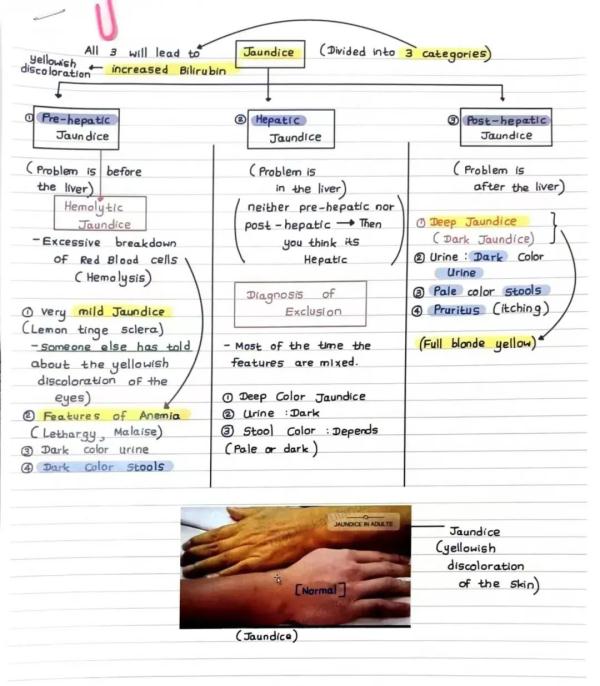 All 3 will lead to
Jaundice
(Divided into 3 categories)
yellowish
discoloration ← increased Bilirubin
① Pre-hepatic
Jaundice
(Problem is before
the liver)
Hemolytic
Jaundice
- Excessive breakdown
of Red Blood cells
(Hemolysis)
① very mild Jaundice
(Lemon tinge sclera)
- someone else has told
about the yellowish
discoloration of the
eyes)
② Features of Anemia
(Lethargy, Malaise)
③ Dark color urine
④ Dark Color Stools
② Hepatic
Jaundice
(Problem is
in the liver)
(neither pre-hepatic nor
post-hepatic → Then
you think its
Hepatic)
Diagnosis of
Exclusion
- Most of the time the
features are mixed.
① Deep Color Jaundice
② Urine : Dark
③ Stool Color : Depends
(Pale or dark)
③ Post-hepatic
Jaundice
(Problem is
after the liver)
① Deep Jaundice
(Dark Jaundice)
② Urine : Dark Color
Urine
③ Pale color stools
④ Pruritus (itching)
(Full blonde yellow)
JAUNDICE IN ADULTS
[Normal]
Jaundice
(yellowish
discoloration
of the skin)
(Jaundice)